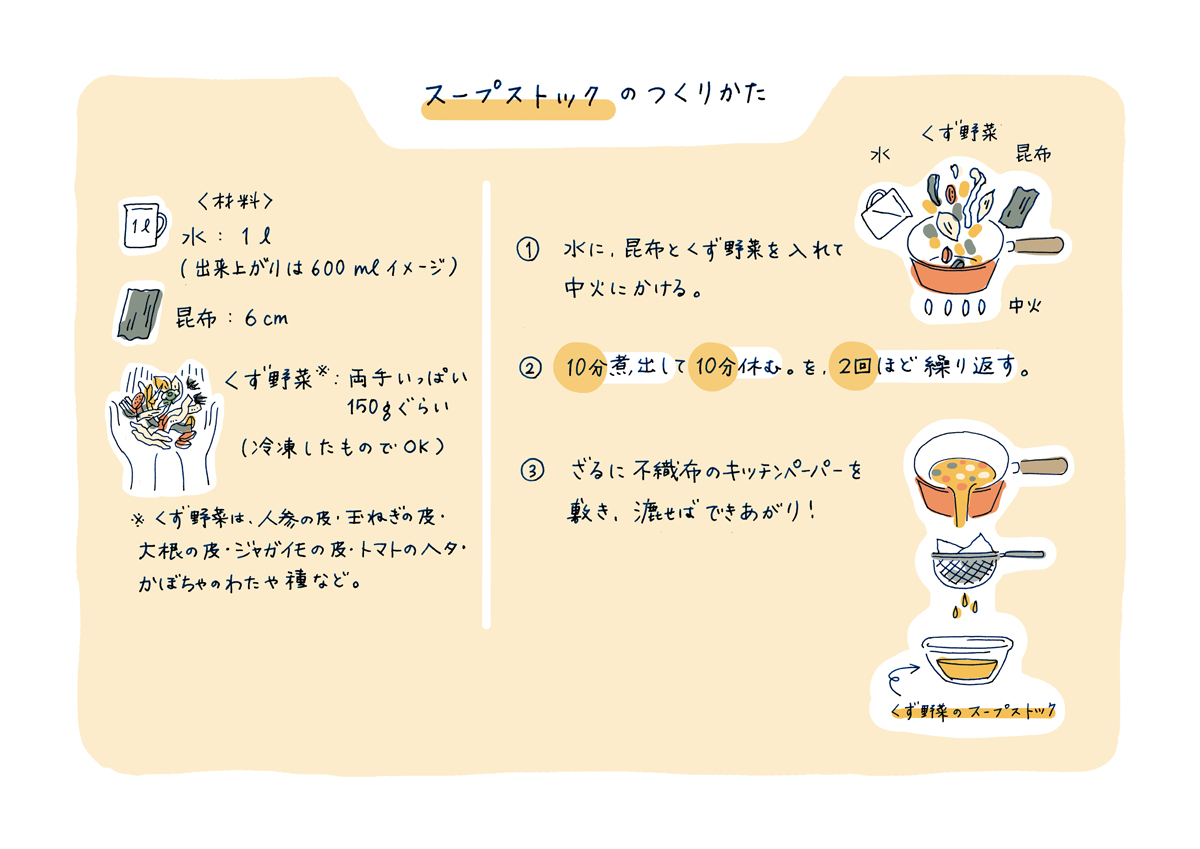 スープストックのつくりかた
1ℓ
〈材料〉
水：1ℓ
(出来上がりは600mlイメージ)
昆布：6cm
くず野菜※：両手いっぱい
150gぐらい
(冷凍したものでOK)
※くず野菜は、人参の皮・玉ねぎの皮・
大根の皮・ジャガイモの皮・トマトのヘタ・
かぼちゃのわたや種など。
くず野菜
水
昆布
① 水に、昆布とくず野菜を入れて
中火にかける。
中火
② 10分煮出して10分休む。を、2回ほど繰り返す。
③ ざるに不織布のキッチンペーパーを
敷き、漉せばできあがり！
くず野菜のスープストック